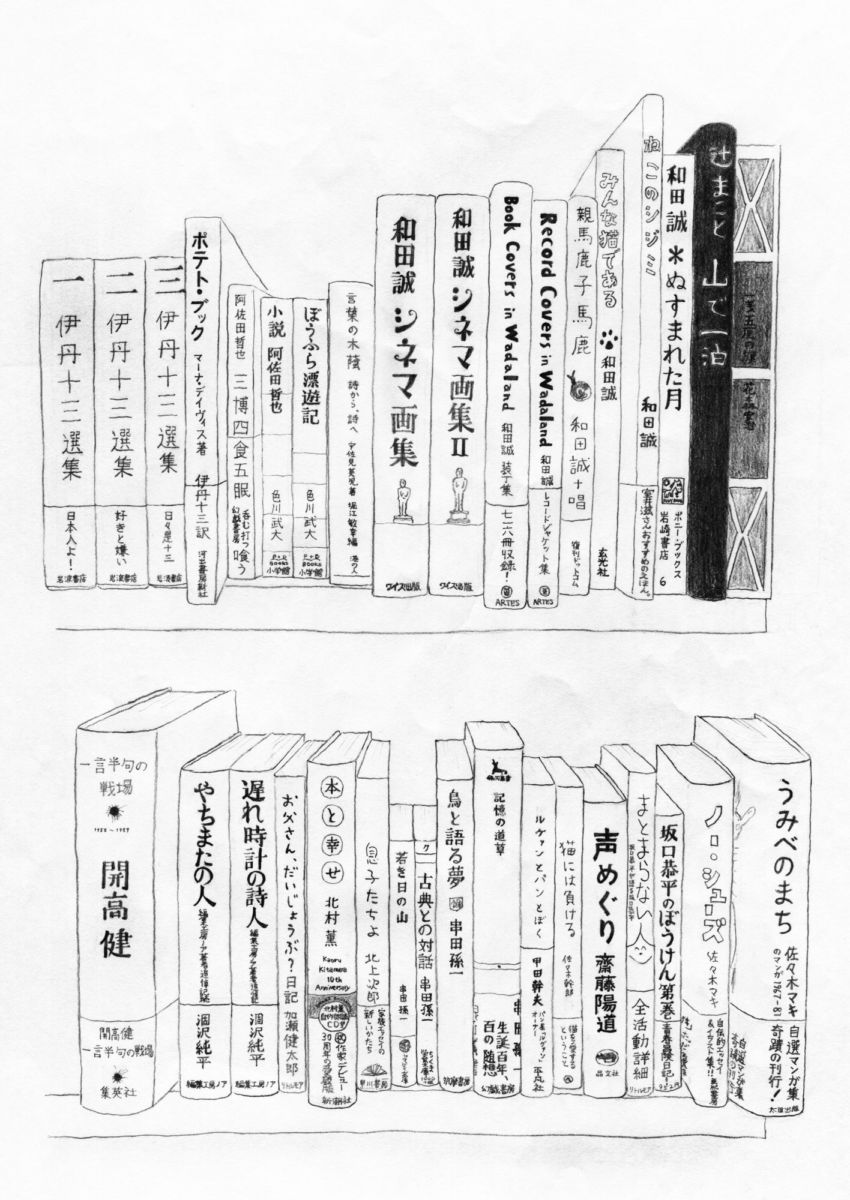 一 伊丹十三選集
日本人よ！
岩波書店
二 伊丹十三選集
好きと嫌い
岩波書店
三 伊丹十三選集
日々是十三
岩波書店
ポテト・ブック
マーナ・デイヴィス著
伊丹十三訳
河出書房新社
阿佐田哲也
三博四食五眠
呑む打つ喰う
幻戯書房
小説 阿佐田哲也
色川武大
P+D BOOKS
小学館
ぼうふら漂遊記
色川武大
P+D BOOKS
小学館
言葉の木蔭
詩から、詩へ
宇佐見英児著
堀江敏幸編
港の人
和田誠シネマ画集
ワイズ出版
和田誠シネマ画集II
ワイズ出版
Book Covers in Wadaland
和田誠 装丁集
七二六冊収録！
ARTES
Record Covers in Wadaland
和田誠
レコードジャケット集
ARTES
親馬鹿子馬鹿
和田誠+唱
復刊ドットコム
みんな猫である
和田誠
玄光社
ねこのシジミ
和田誠
室井滋さんおすすめのえほん。
和田誠＊ぬすまれた月
ポニー・ブックス
岩崎書店
6
辻まこと 山で一泊
一言半句の
戦場
開高健
開高健
一言半句の戦場
集英社
やちまたの人
編集工房ノア著者追悼記
涸沢純平
編集工房ノア
遅れ時計の詩人
編集工房ノア著者追悼記
涸沢純平
編集工房ノア
お父さん、だいじょうぶ？日記
加瀬健太郎
リトルモア
本と幸せ
北村薫
Kaoru
Kitamura
10th
Anniversary
北村薫
自作朗読
CD付
作家デビュー
30周年の愛蔵版
新潮社
息子たちよ
北上次郎
家族エッセイの
新しいかたち
早川書房
若き日の山
串田孫一
古典との対話
串田孫一
鳥と語る夢
串田孫一
筑摩書房
記憶の道草
串田孫一
生誕百年、
百の随想
幻戯書房
ルヴァンとパンとぼく
甲田幹夫
パン屋〈ルヴァン〉
オーナー
平凡社
猫には負ける
佐々木幹郎
猫を愛する
ということ
声めぐり
齋藤陽道
晶文社
まとまらない人
全活動詳細
リトルモア
坂口恭平のぼうけん
第一巻
青春爆發日記！
ノー・シューズ
佐々木マキ
自伝的エッセイ
＆イラスト集!!
亜紀書房
うみべのまち
佐々木マキ
のマンガ1967-81
自選マンガ集
奇蹟の刊行！
太田出版